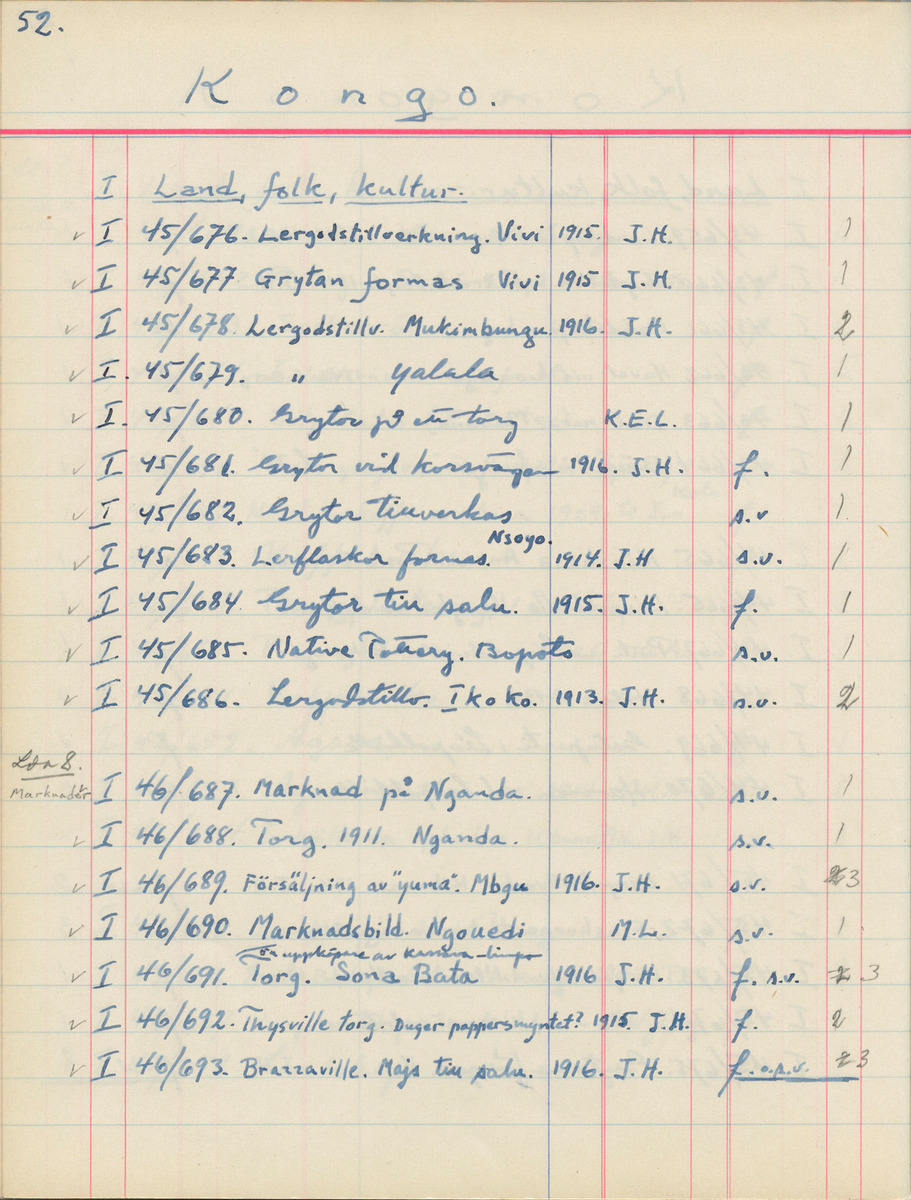 52.
Kongo.
I Land, folk, kultur.
✓ I 45/676. Lergodstillverkning. Vivi 1915. J.H. 1
✓ I 45/677 Grytan formas Vivi 1915 J.H. 1
✓ I 45/678. Lergodstillv. Mukimbungu 1916. J.H. 2
✓ I. 45/679. " Yalala 1
✓ I. 45/680. Grytor på ett torg K.E.L. 1
✓ I 45/681. Grytor vid korsvägen 1916. J.H. f. 1
✓ I 45/682. Grytor tillverkas s.v 1.
✓ I 45/683. Lerflaskor formas. Nsoyo. 1914. J.H s.v. 1
✓ I 45/684 Grytor till salu. 1915. J.H. f. 1
✓ I 45/685. Native Pottery. Bopoto s.v. 1
✓ I 45/686. Lergodstillv. Ikoko. 1913. J.H. s.v. 2
Låda 8.
Marknader I 46/687. Marknad på Nganda. s.v. 1
✓ I 46/688. Torg. 1911. Nganda. s.v. 1
✓ I 46/689. Försäljning av "yuma". Mbgu 1916. J.H. s.v. 3
✓ I 46/690. Marknadsbild. Ngouedi M.L. s.v. 1
En uppköpare av Kassava-limpo
✓ I 46/691. Torg. Sona Bata 1916 J.H. f. s.v. 2 3
✓ I 46/692. Thysville torg. Duger pappersmyntet? 1915 J.H. f. 2
✓ I 46/693. Brazzaville. Majs till salu. 1916. J.H. f. o.s.v. 2 3